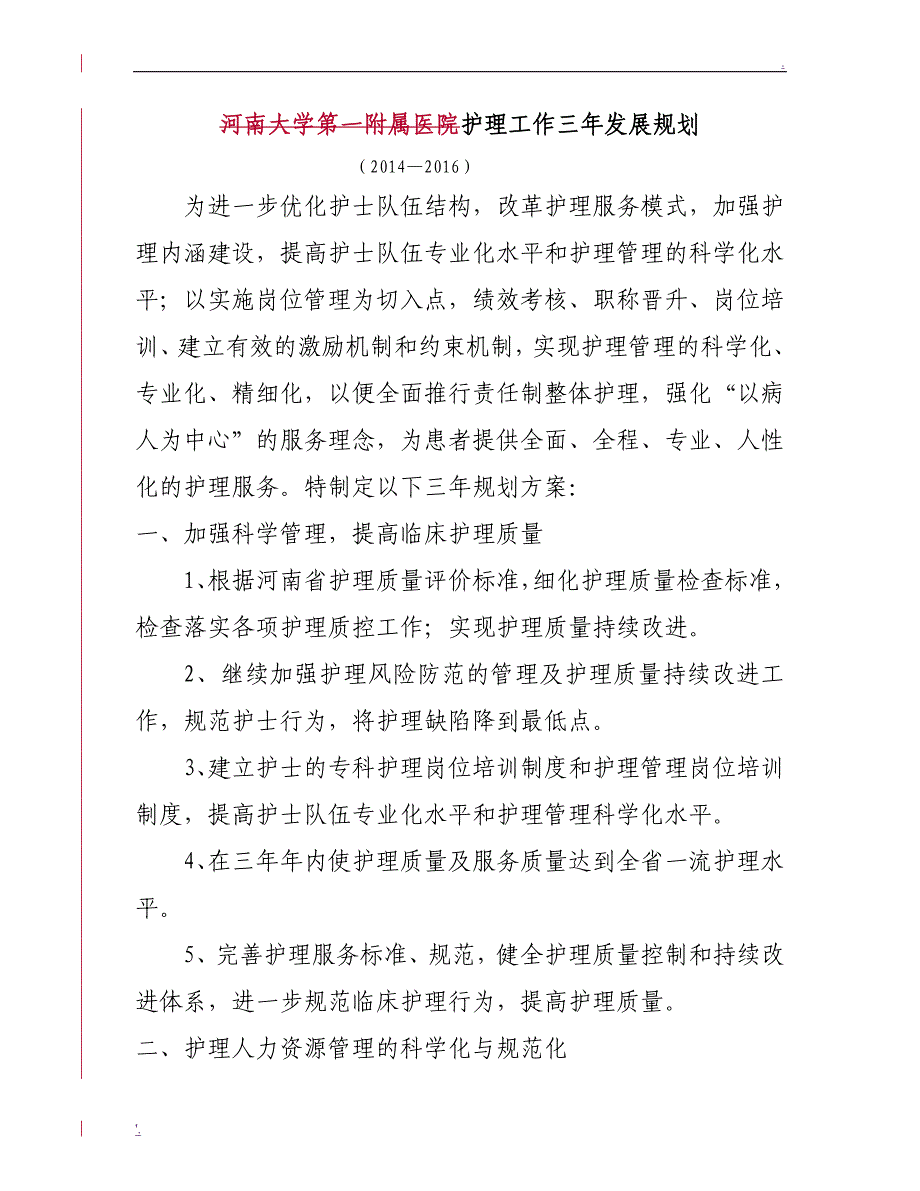 河南大学第一附属医院护理工作三年发展规划
（2014—2016）
为进一步优化护士队伍结构，改革护理服务模式，加强护
理内涵建设，提高护士队伍专业化水平和护理管理的科学化水
平；以实施岗位管理为切入点，绩效考核、职称晋升、岗位培
训、建立有效的激励机制和约束机制，实现护理管理的科学化、
专业化、精细化，以便全面推行责任制整体护理，强化“以病
人为中心”的服务理念，为患者提供全面、全程、专业、人性
化的护理服务。特制定以下三年规划方案：
一、加强科学管理，提高临床护理质量
1、根据河南省护理质量评价标准，细化护理质量检查标准，
检查落实各项护理质控工作；实现护理质量持续改进。
2、继续加强护理风险防范的管理及护理质量持续改进工
作，规范护士行为，将护理缺陷降到最低点。
3、建立护士的专科护理岗位培训制度和护理管理岗位培训
制度，提高护士队伍专业化水平和护理管理科学化水平。
4、在三年年内使护理质量及服务质量达到全省一流护理水
平。
5、完善护理服务标准、规范，健全护理质量控制和持续改
进体系，进一步规范临床护理行为，提高护理质量。
二、护理人力资源管理的科学化与规范化